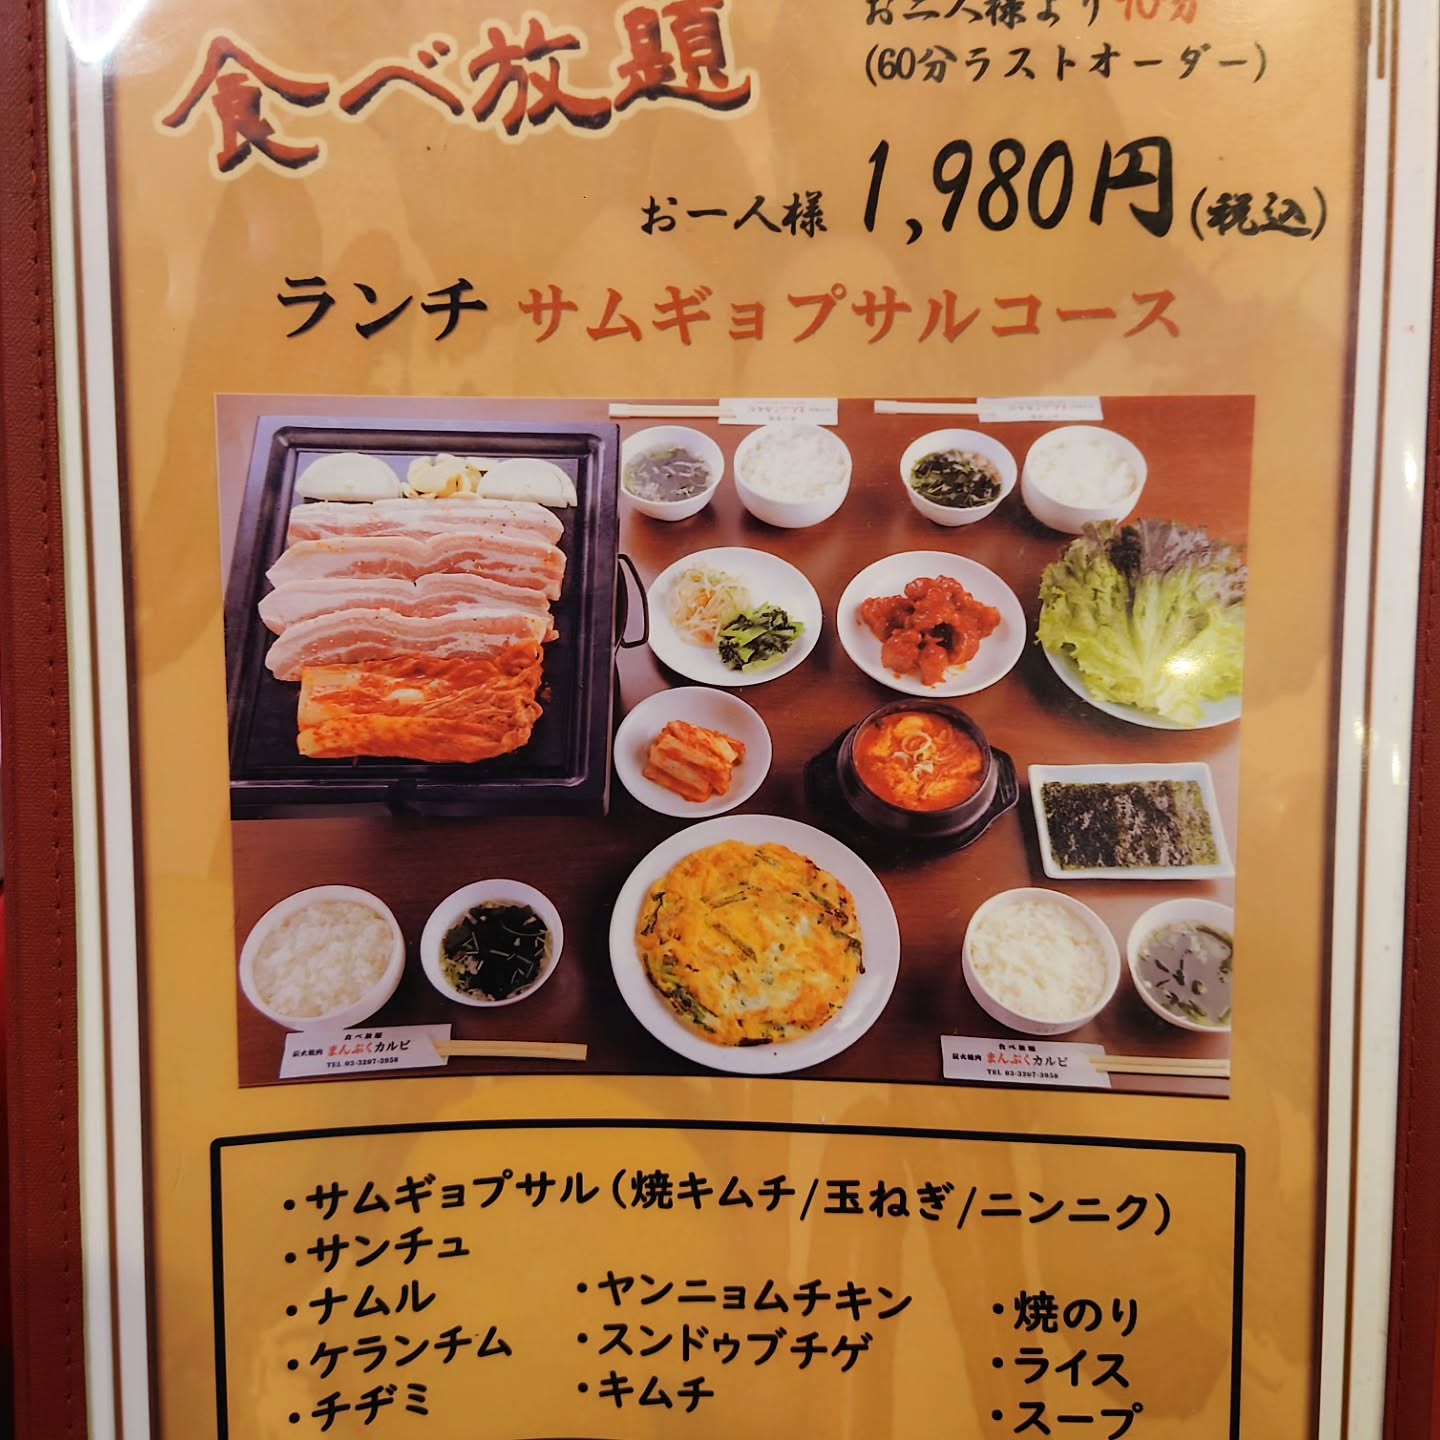 お二人様より90分
食べ放題
(60分ラストオーダー)
お一人様 1,980円(税込)
ランチ サムギョプサルコース
食べ放題
炭火焼肉 まんぷくカルビ
TEL 03-3207-3956
食べ放題
炭火焼肉 まんぷくカルビ
TEL 03-3207-3956
・サムギョプサル(焼キムチ/玉ねぎ/ニンニク)
・サンチュ
・ナムル
・ケランチム
・チヂミ
・ヤンニョムチキン
・スンドゥブチゲ
・キムチ
・焼のり
・ライス
・スープ